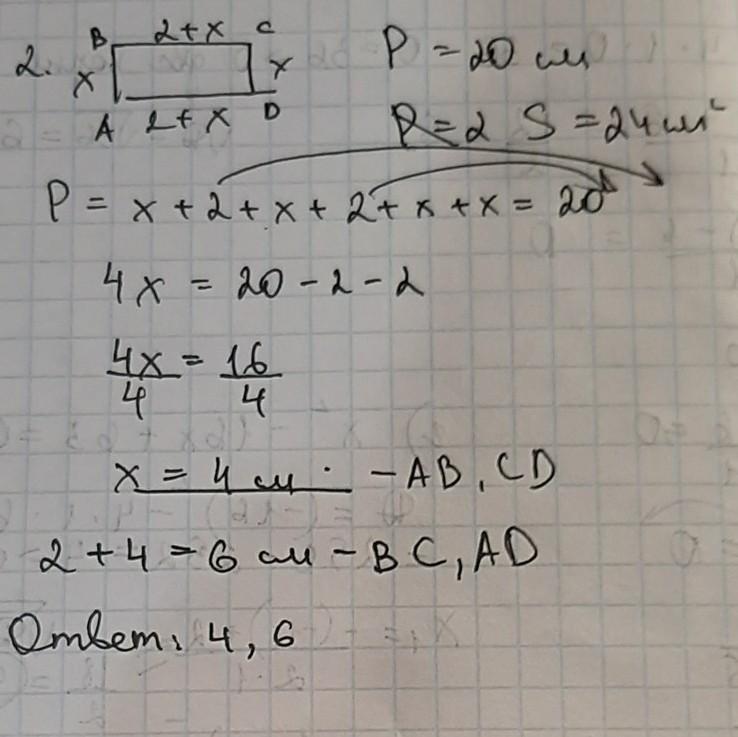 2. B 2+x C
x x P = 20 см
A 2+x D P=2 S = 24 см²
P = x + 2 + x + 2 + x + x = 20
4x = 20 - 2 - 2
4x/4 = 16/4
x = 4 см. - AB, CD
2 + 4 = 6 см - BC, AD
Ответ: 4, 6